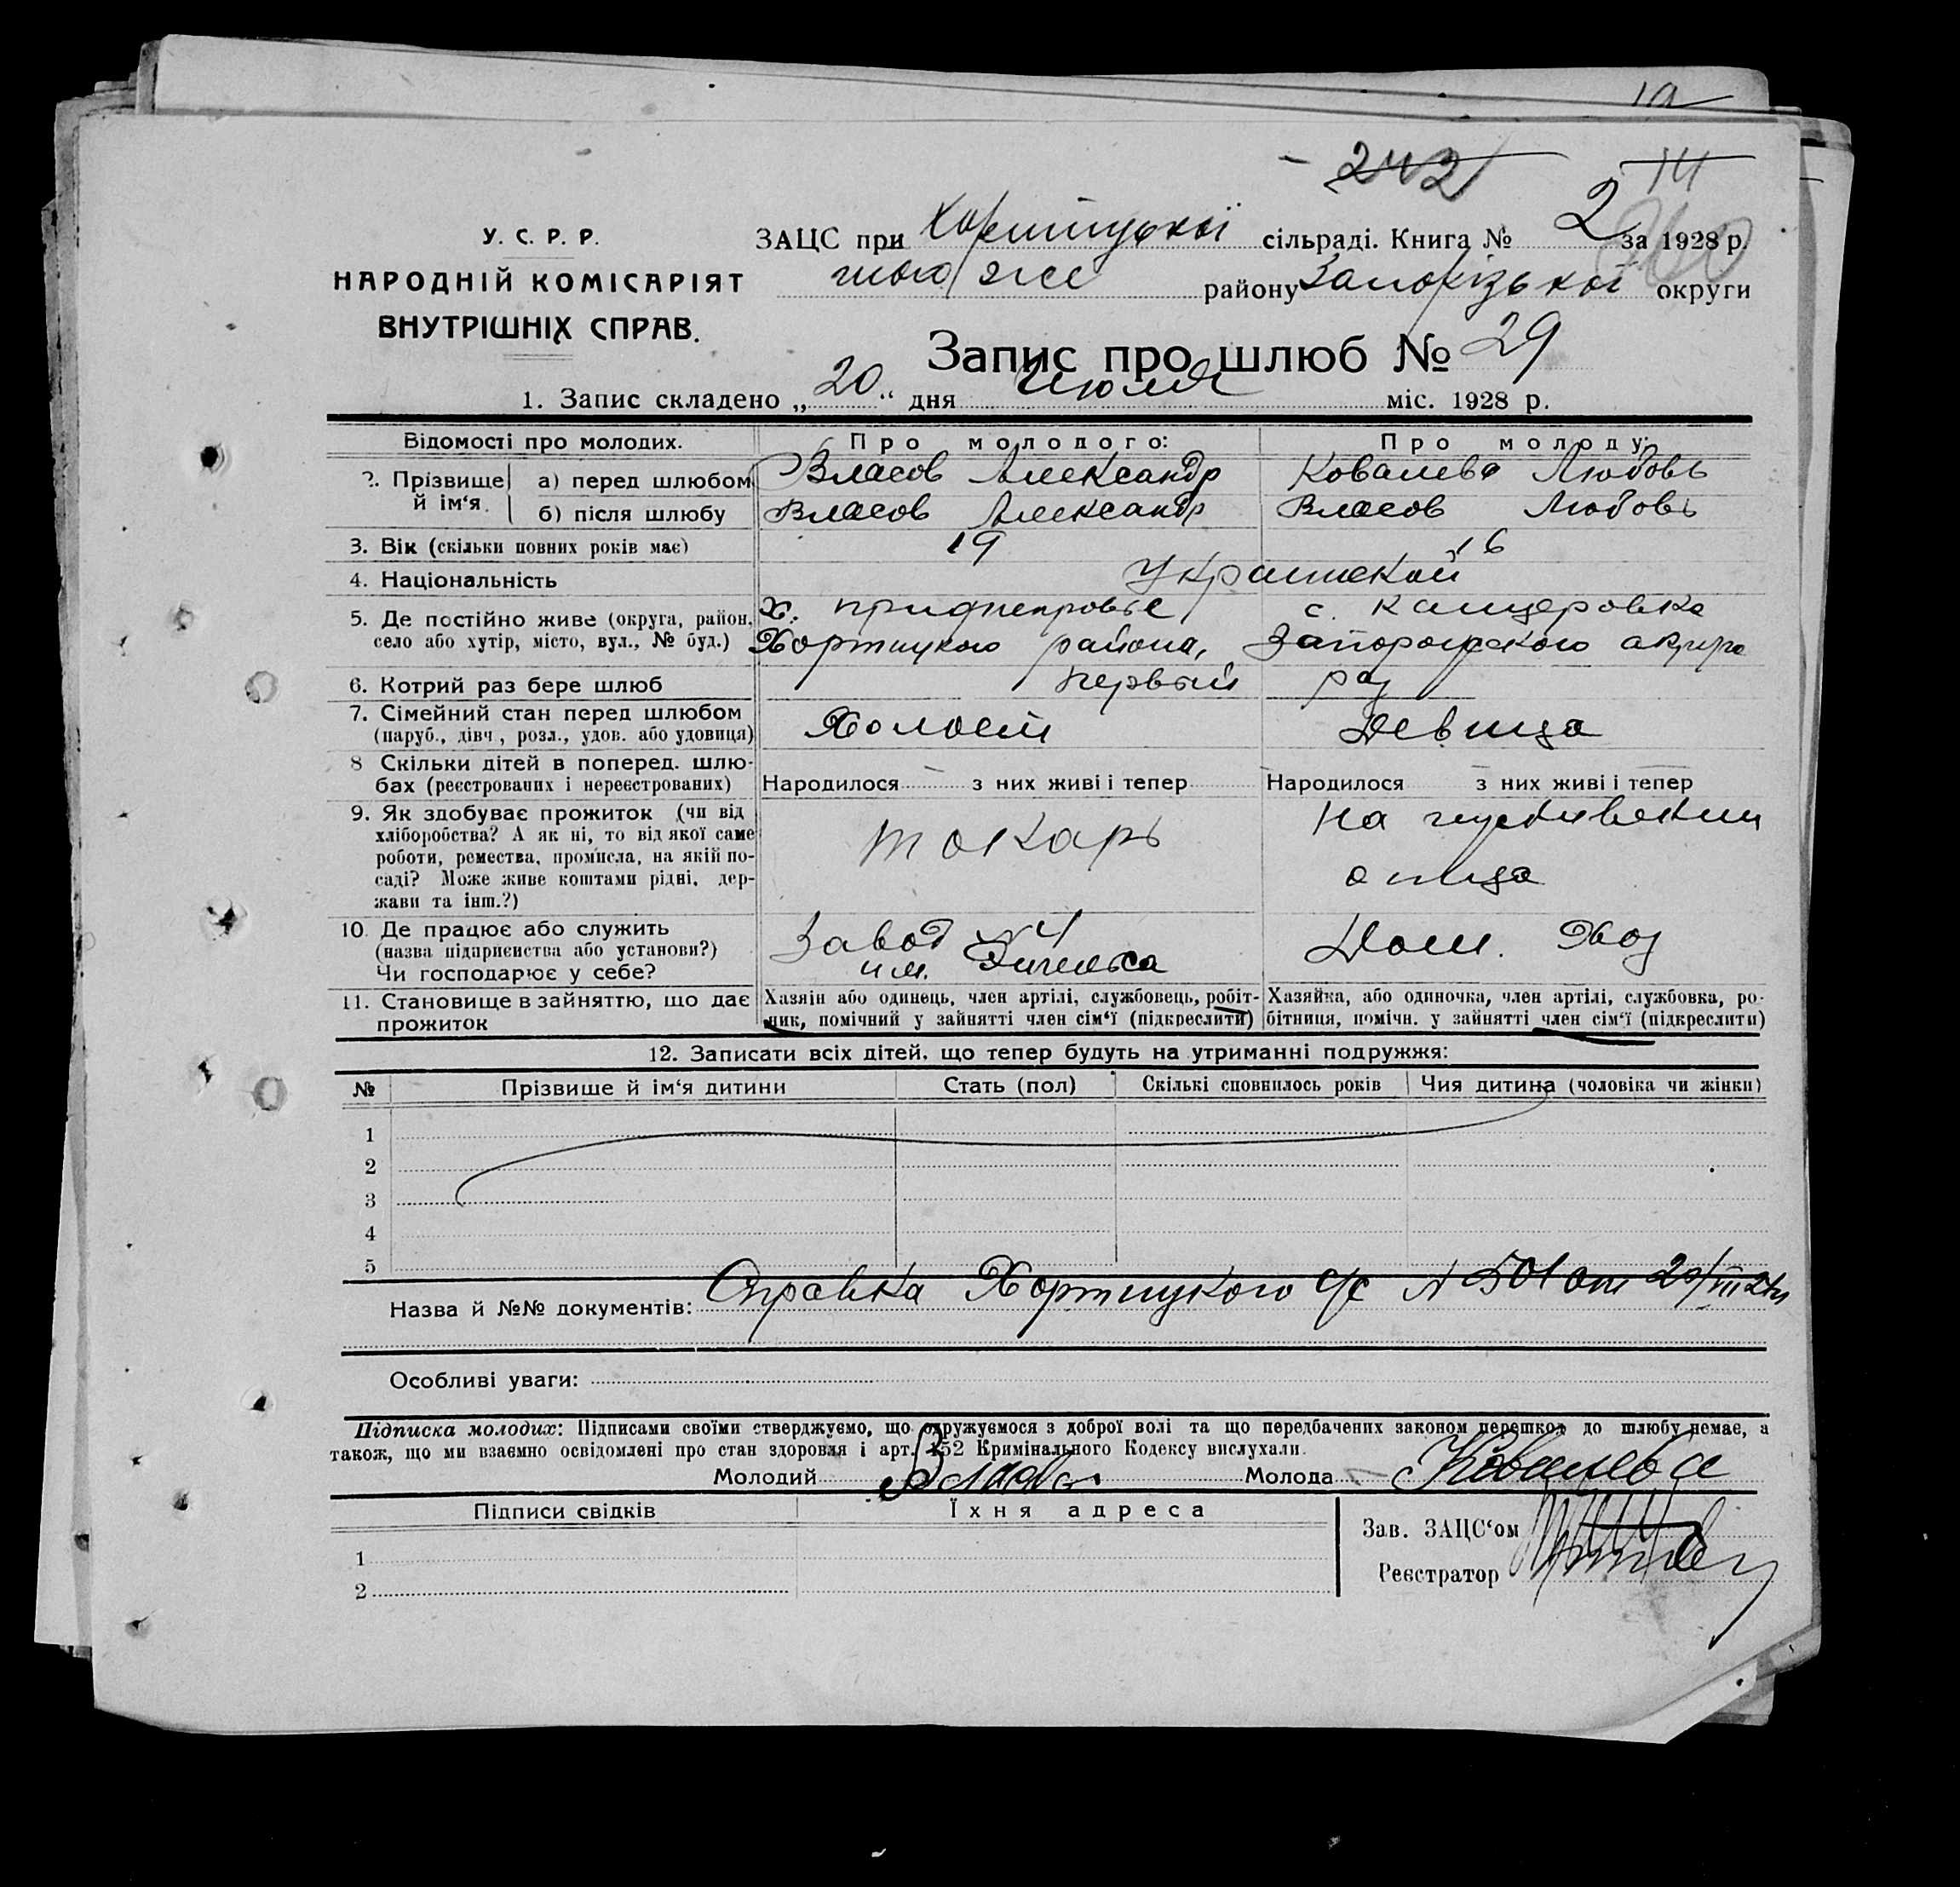 19
242
14
У. С. Р. Р.
НАРОДНІЙ КОМІСАРІЯТ
ВНУТРІШНІХ СПРАВ.
ЗАЦС при Хортицької сільраді. Книга № 2 за 1928 р.
того же району Запорізької округи
Запис про шлюб № 29
1. Запис складено „20" дня Июля міс. 1928 р.
Відомості про молодих. Про молодого: Про молоду:
2. Прізвище й ім‘я. а) перед шлюбом Власов Александр Ковалева Любовь
б) після шлюбу Власов Александр Власов Любовь
3. Вік (скільки повних років має) 19 16
4. Національність Украинской
5. Де постійно живе (округа, район, х. Приднепровье с. Канцеровка
село або хутір, місто, вул., № буд.) Хортицкого района, Запорожского
6. Котрий раз бере шлюб Первый раз
7. Сімейний стан перед шлюбом Холост Девица
(паруб., дівч., розл., удов. або удовиця)
8 Скільки дітей в поперед. шлю-
бах (реєстрованих і нереєстрованих) Народилося з них живі і тепер Народилося з них живі і тепер
9. Як здобуває прожиток (чи від На
хліборобства? А як ні, то від якої саме токарь
роботи, ремества, промисла, на якій по-
саді? Може живе коштами рідні, дер- отца
жави та інш.?)
10. Де працює або служить Завод №4 Дом. Хоз
(назва підприємства або установи?) им. Энгельса
Чи господарює у себе?
11. Становище в зайняттю, що дає Хазяїн або одинець, член артілі, службовець, робіт- Хазяйка, або одиночка, член артілі, службовка, ро-
прожиток ник, помічний у зайнятті член сім‘ї (підкреслити) бітниця, помічн. у зайнятті член сім‘ї (підкреслити)
12. Записати всіх дітей, що тепер будуть на утриманні подружжя:
№ Прізвище й ім‘я дитини Стать (пол) Скількі сповнилось років Чия дитина (чоловіка чи жінки)
1
2
3
4
5
Назва й №№ документів: Справка Хортицкого с/с № 501 от
Особливі уваги:
Підписка молодих: Підписами своїми стверджуємо, що одружуємося з доброї волі та що передбачених законом перешкод до шлюбу немає, а
також, що ми взаємно освідомлені про стан здоровля і арт. 152 Кримінального Кодексу вислухали.
Молодий Власов Молода Ковалева
Підписи свідків Їхня адреса
Зав. ЗАЦС‘ом
1
Реєстратор
2